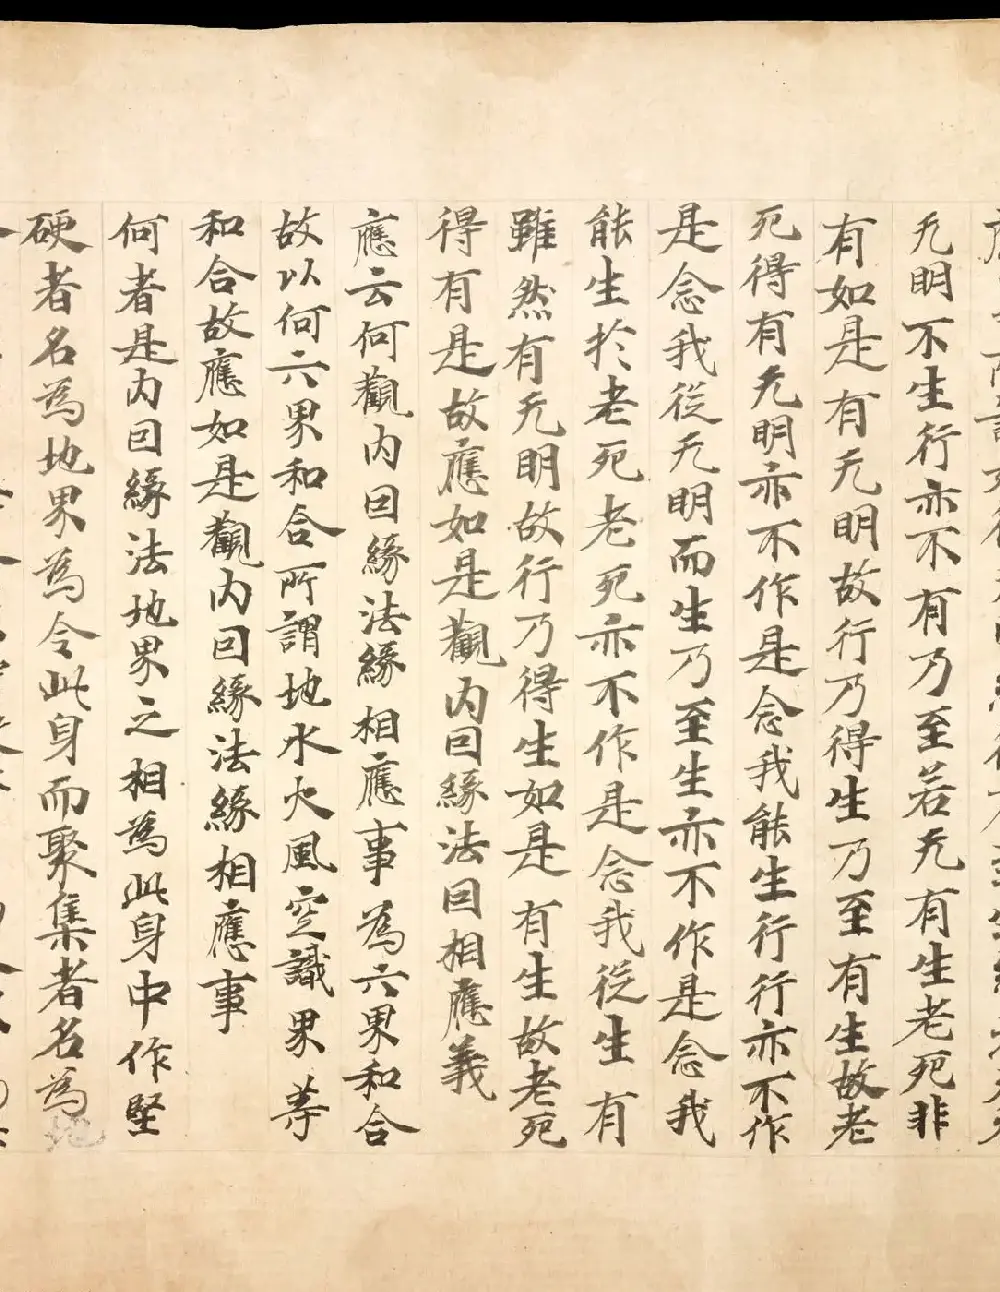 无明不生行亦不有乃至若无有生老死非
有如是有无明故行乃得生乃至有生故老
死得有无明亦不作是念我能生行行亦不作
是念我从无明而生乃至生亦不作是念我
能生於老死老死亦不作是念我从生有
雖然有无明故行乃得生如是有生故老死
得有是故應如是觀内因緣法因相應義
應云何觀内因緣法緣相應事為六界和合
故以何六界和合所謂地水火風空識界等
和合故應如是觀内因緣法緣相應事
何者是内因緣法地界之相為此身中作堅
硬者名為地界為令此身而聚集者名為地